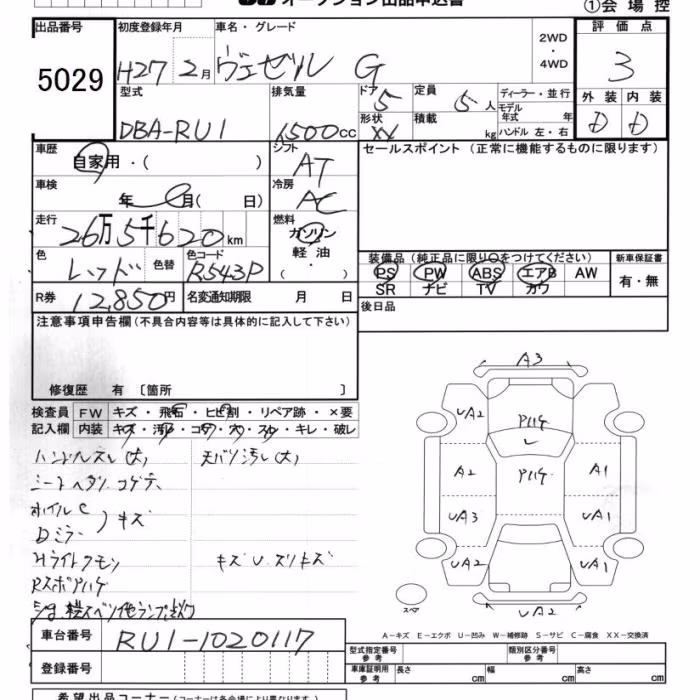 オークション出品申込書
①会場控
出品番号
5029
初度登録年月
H27 2月
車名・グレード
ヴェゼル G
2WD
・
4WD
評価点
3
型式
DBA-RU1
排気量
1500cc
ドア
5
定員
5人
ディーラー・並行
モデル
年式 年
形状
XX
積載
kg
ハンドル 左・右
外装
D
内装
D
車歴
自家用・( )
シフト
AT
セールスポイント(正常に機能するものに限ります)
車検
年 月( 日)
冷房
AC
走行
26万5千620km
燃料
ガソリン
軽油
・( )
色
レッド
色替
色コード
R543P
装備品(純正品に限り○をつけてください)
新車保証書
PS PW ABS エアB AW
SR ナビ TV カワ
有・無
R券
12,850円
名変通知期限 月 日
後日品
注意事項申告欄(不具合内容等は具体的に記入して下さい)
修復歴 有〔箇所 〕
検査員
記入欄
FW キズ・飛石・ヒビ割・リペア跡・×要
内装 キズ・汚れ・コゲ・穴・スレ・キレ・破レ
ハンドルスレ(大) 天バリ汚レ(大)
シートヘタリ コゲテ
ホイルC
Dミラー
)キズ
Hライトクモリ キズU.スリキズ
Rスポアハゲ
A3
UA2 Pハゲ
A2 Pハゲ A1
UA3 UA1
UA2 UA1
スペア UA2
A-キズ E-エクボ U-凹み W-補修跡 S-サビ C-腐食 XX-交換済
車台番号
RU1-1020117
登録番号
型式指定番号
参考
類別区分番号
参考
車庫証明用
参考
長さ cm 幅 cm 高さ cm
希望出品コーナー(コーナーは各会場により異なります)